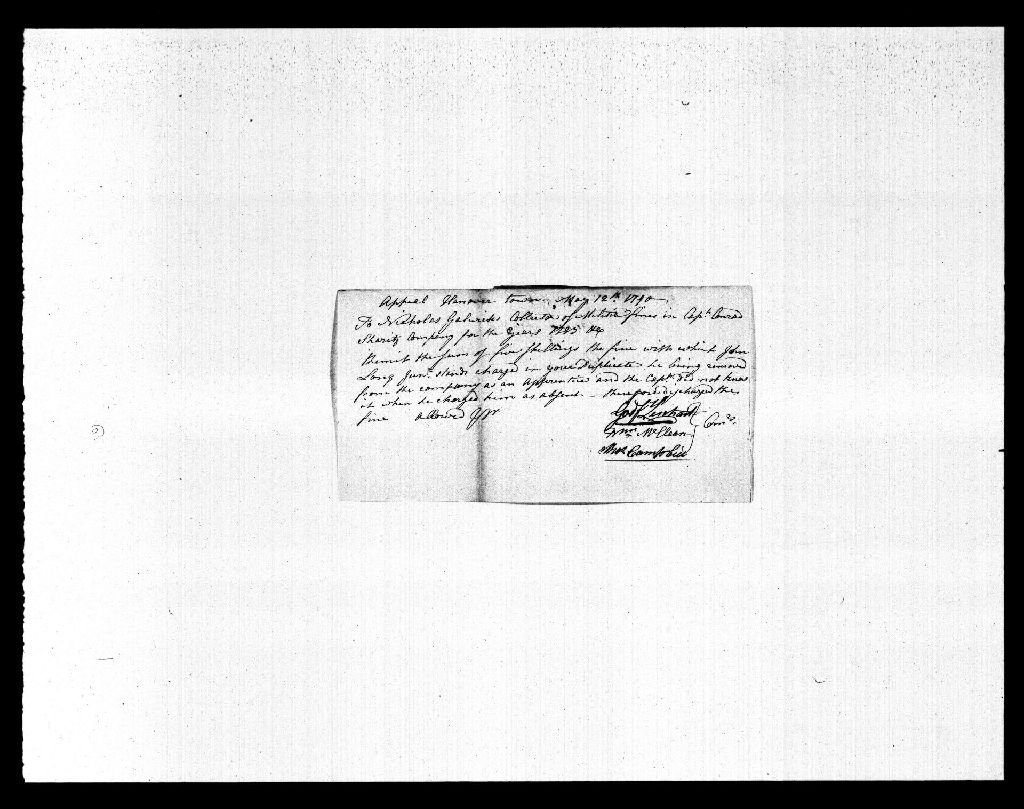 Appeal Hanover town May 12th 1790
To Nicholas Collector of Militia fines in Capt Conrad
Sharitz Company for the Years 1785 &c
Remit the sum of five shillings the fine with which John
Long Junr. stands charged in your Duplicate he being removed
from the company as an apprentice and the Capt. did not know
it when he charged him as absent. – therefore discharged the
fine allowed
Lisehart
Wm. McClean Comrs.
Campbell